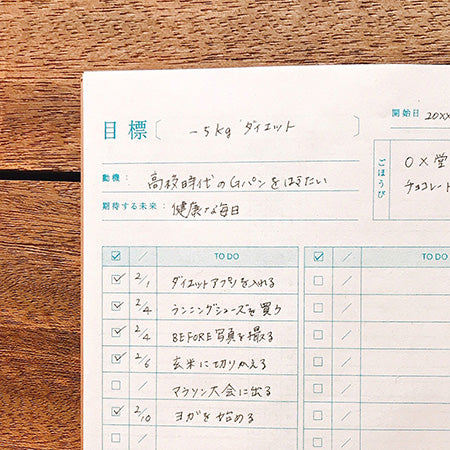 目標 〔 -5kg ダイエット 〕
開始日 20XX
動機： 高校時代のGパンをはきたい
期待する未来： 健康な毎日
ごほうび
○×堂
チョコレート
☑ / TO DO
☑ 2/1 ダイエットアプリを入れる
☑ 2/4 ランニングシューズを買う
☑ 2/4 BEFORE写真を撮る
☑ 2/6 玄米に切りかえる
□ / マラソン大会に出る
☑ 2/10 ヨガを始める
□ /
☑ / TO DO
□ /
□ /
□ /
□ /
□ /
□ /
□ /